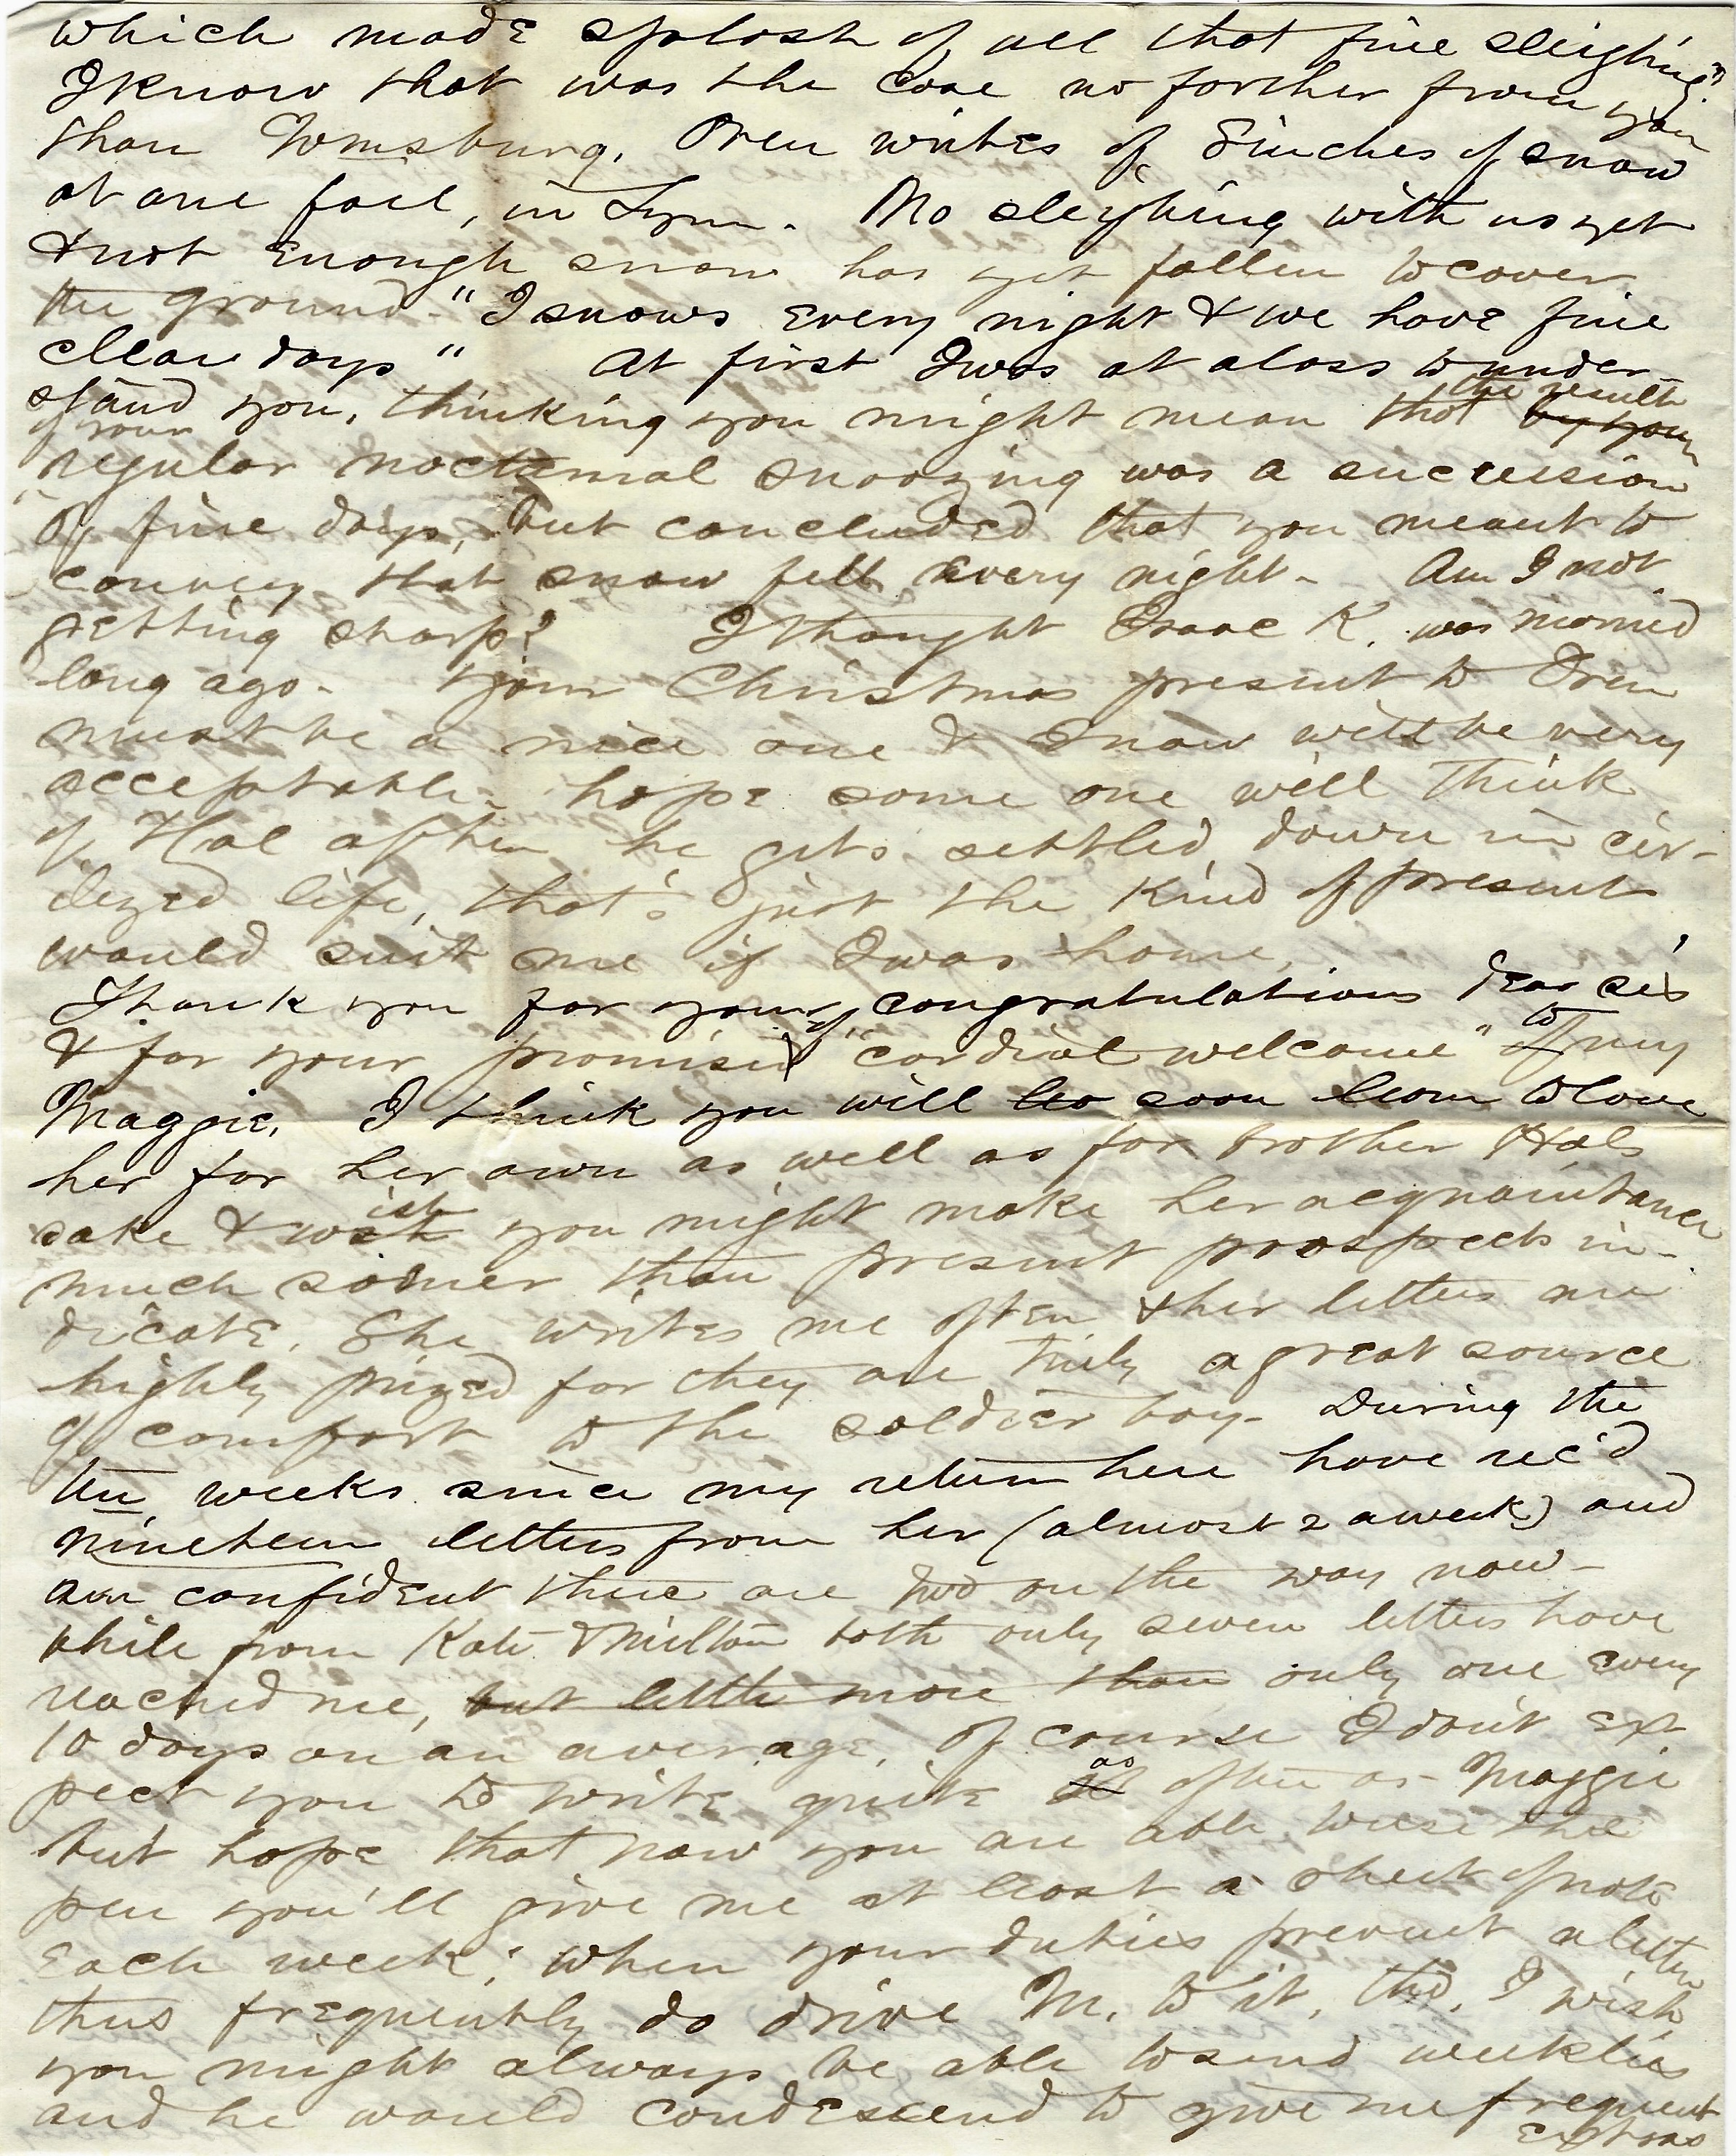 which made splosh of all that fine sleighing"?
I know that was the case no farther from you
than Wmsburg. Oren writes of 8 inches of snow
at one fall, in Lynn. No sleighing with us yet
& not enough snow has yet fallen to cover
the ground. "I snows every night & we have fine
clear days" At first I was at a loss to under-
stand you, thinking you might mean that the result by your
of your
regular nocturnal snoozing was a succession
of fine days, but concluded that you meant to
convey that snow fell every night - Am I not
getting sharp? I thought Isaac K. was married
long ago - Your Christmas present to Oren
must be a nice one & I know will be very
acceptable - hope some one will think
of Hal after he gets settled down in civ-
ilized life, that's just the kind of present
would suit me if I was home.
Thank you for your congratulations dear sis'
& for your promise of "cordial welcome" of to my
Maggie. I think you will soon learn to love
her for her own as well as for brother Hals
sake & wish you might make her acquaintance
much sooner than present prospects in-
dicate. She writes me often & her letters are
highly prized for they are truly a great source
of comfort to the soldier boy - During the
ten weeks since my return here have rec'd
nineteen letters from her (almost 2 a week) and
am confident there are two on the way now -
while from Kate & Milton both only seven letters have
reached me, but little more than only one every
10 days on an average. Of course I don't ex-
pect you to write quite as often as - Maggie
but hope that now you are able to use the
pen you'll give me at least a sheet of note
each week; when your duties prevent a letter
thus frequently do drive M. to it, tho'. I wish
you might always be able to send weeklies
and he would condescend to give me frequent
extras